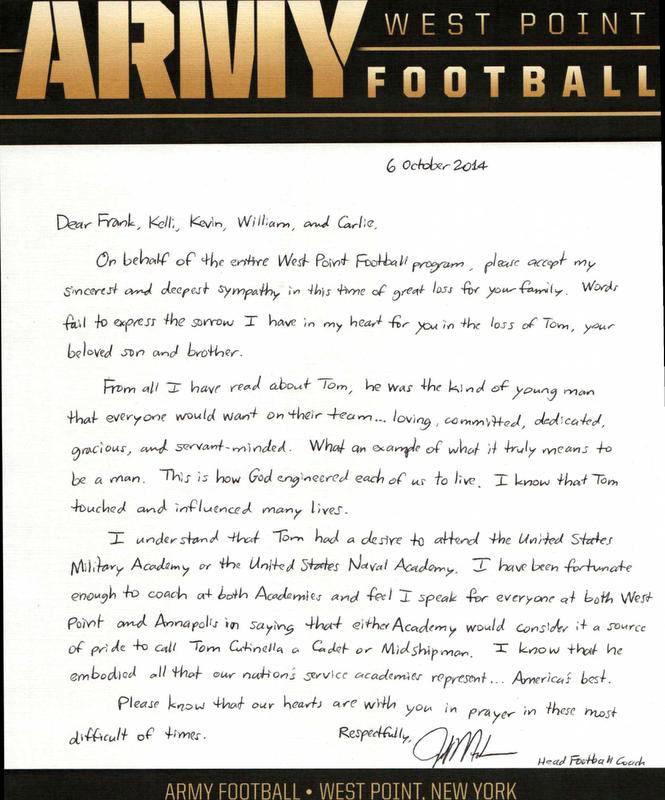 ARMY WEST POINT
FOOTBALL
6 October 2014
Dear Frank, Kelli, Kevin, William, and Carlie,
On behalf of the entire West Point Football program, please accept my
sincerest and deepest sympathy in this time of great loss for your family. Words
fail to express the sorrow I have in my heart for you in the loss of Tom, your
beloved son and brother.
From all I have read about Tom, he was the kind of young man
that everyone would want on their team... loving, committed, dedicated,
gracious, and servant-minded. What an example of what it truly means to
be a man. This is how God engineered each of us to live. I know that Tom
touched and influenced many lives.
I understand that Tom had a desire to attend the United States
Military Academy or the United States Naval Academy. I have been fortunate
enough to coach at both Academies and feel I speak for everyone at both West
Point and Annapolis in saying that either Academy would consider it a source
of pride to call Tom Cutinella a Cadet or Midshipman. I know that he
embodied all that our nation's service academies represent... America's best.
Please know that our hearts are with you in prayer in these most
difficult of times. Respectfully,
Head Football Coach
ARMY FOOTBALL • WEST POINT, NEW YORK